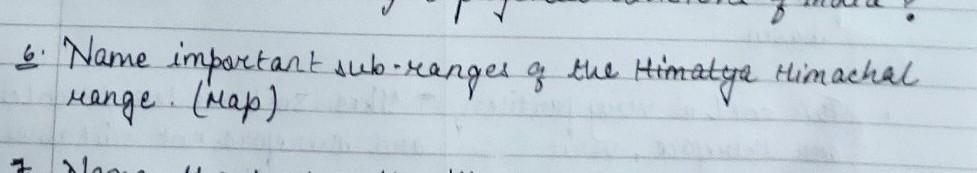 of India ?
6. Name important sub-ranges of the Himalya Himachal
range. (Map)
7